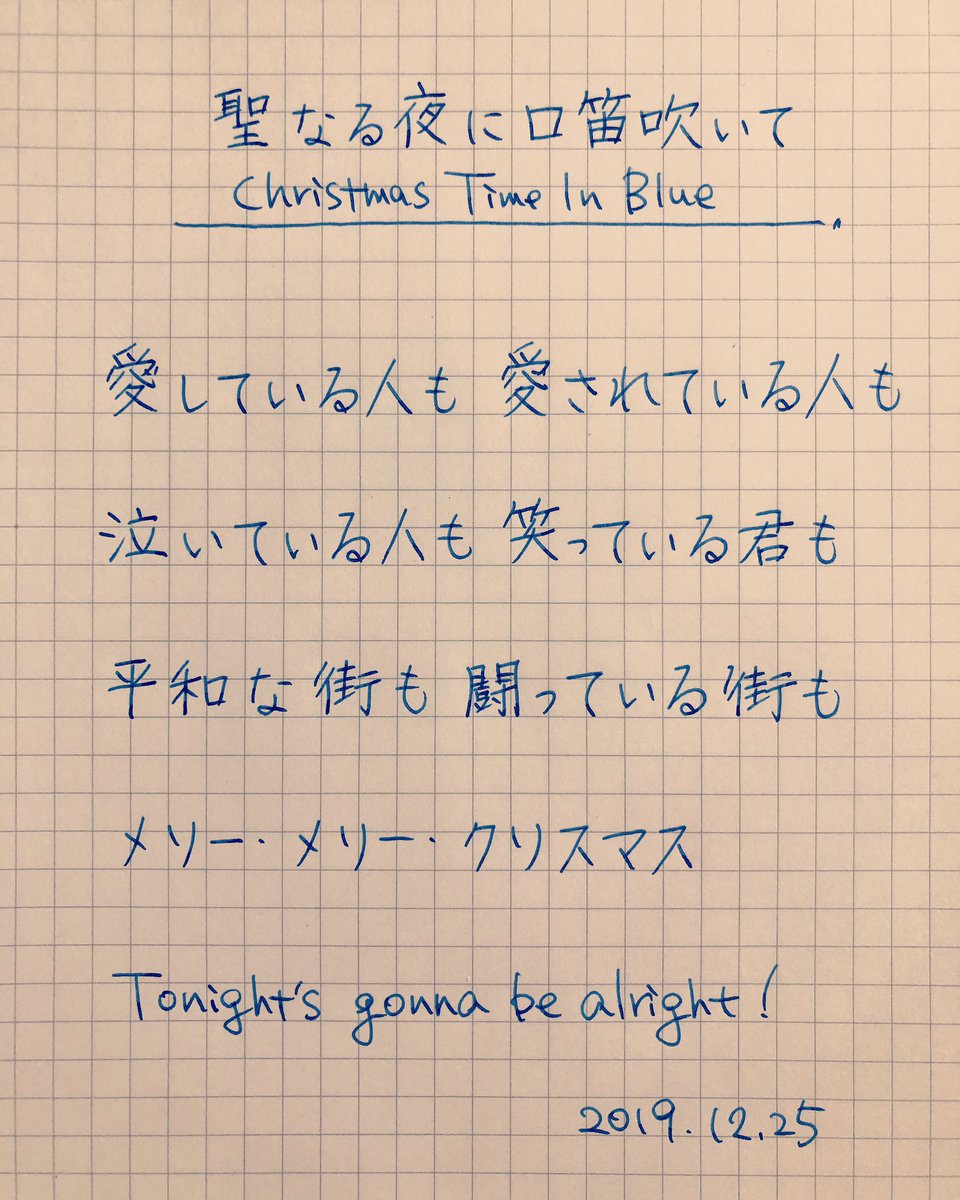 聖なる夜に口笛吹いて
Christmas Time In Blue
愛している人も 愛されている人も
泣いている人も 笑っている君も
平和な街も 闘っている街も
メリー・メリー・クリスマス
Tonight's gonna be alright!
2019.12.25